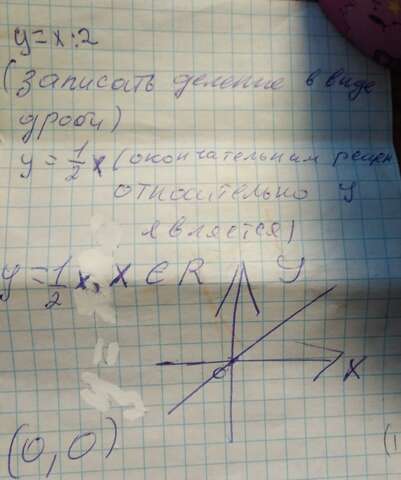 y=x:2
(Записать деление в виде
дроби)
y=1/2x (окончательним решен
относительно y
является)
y=1/2x, x ∈ R
y
0
x
(0,0)
(1